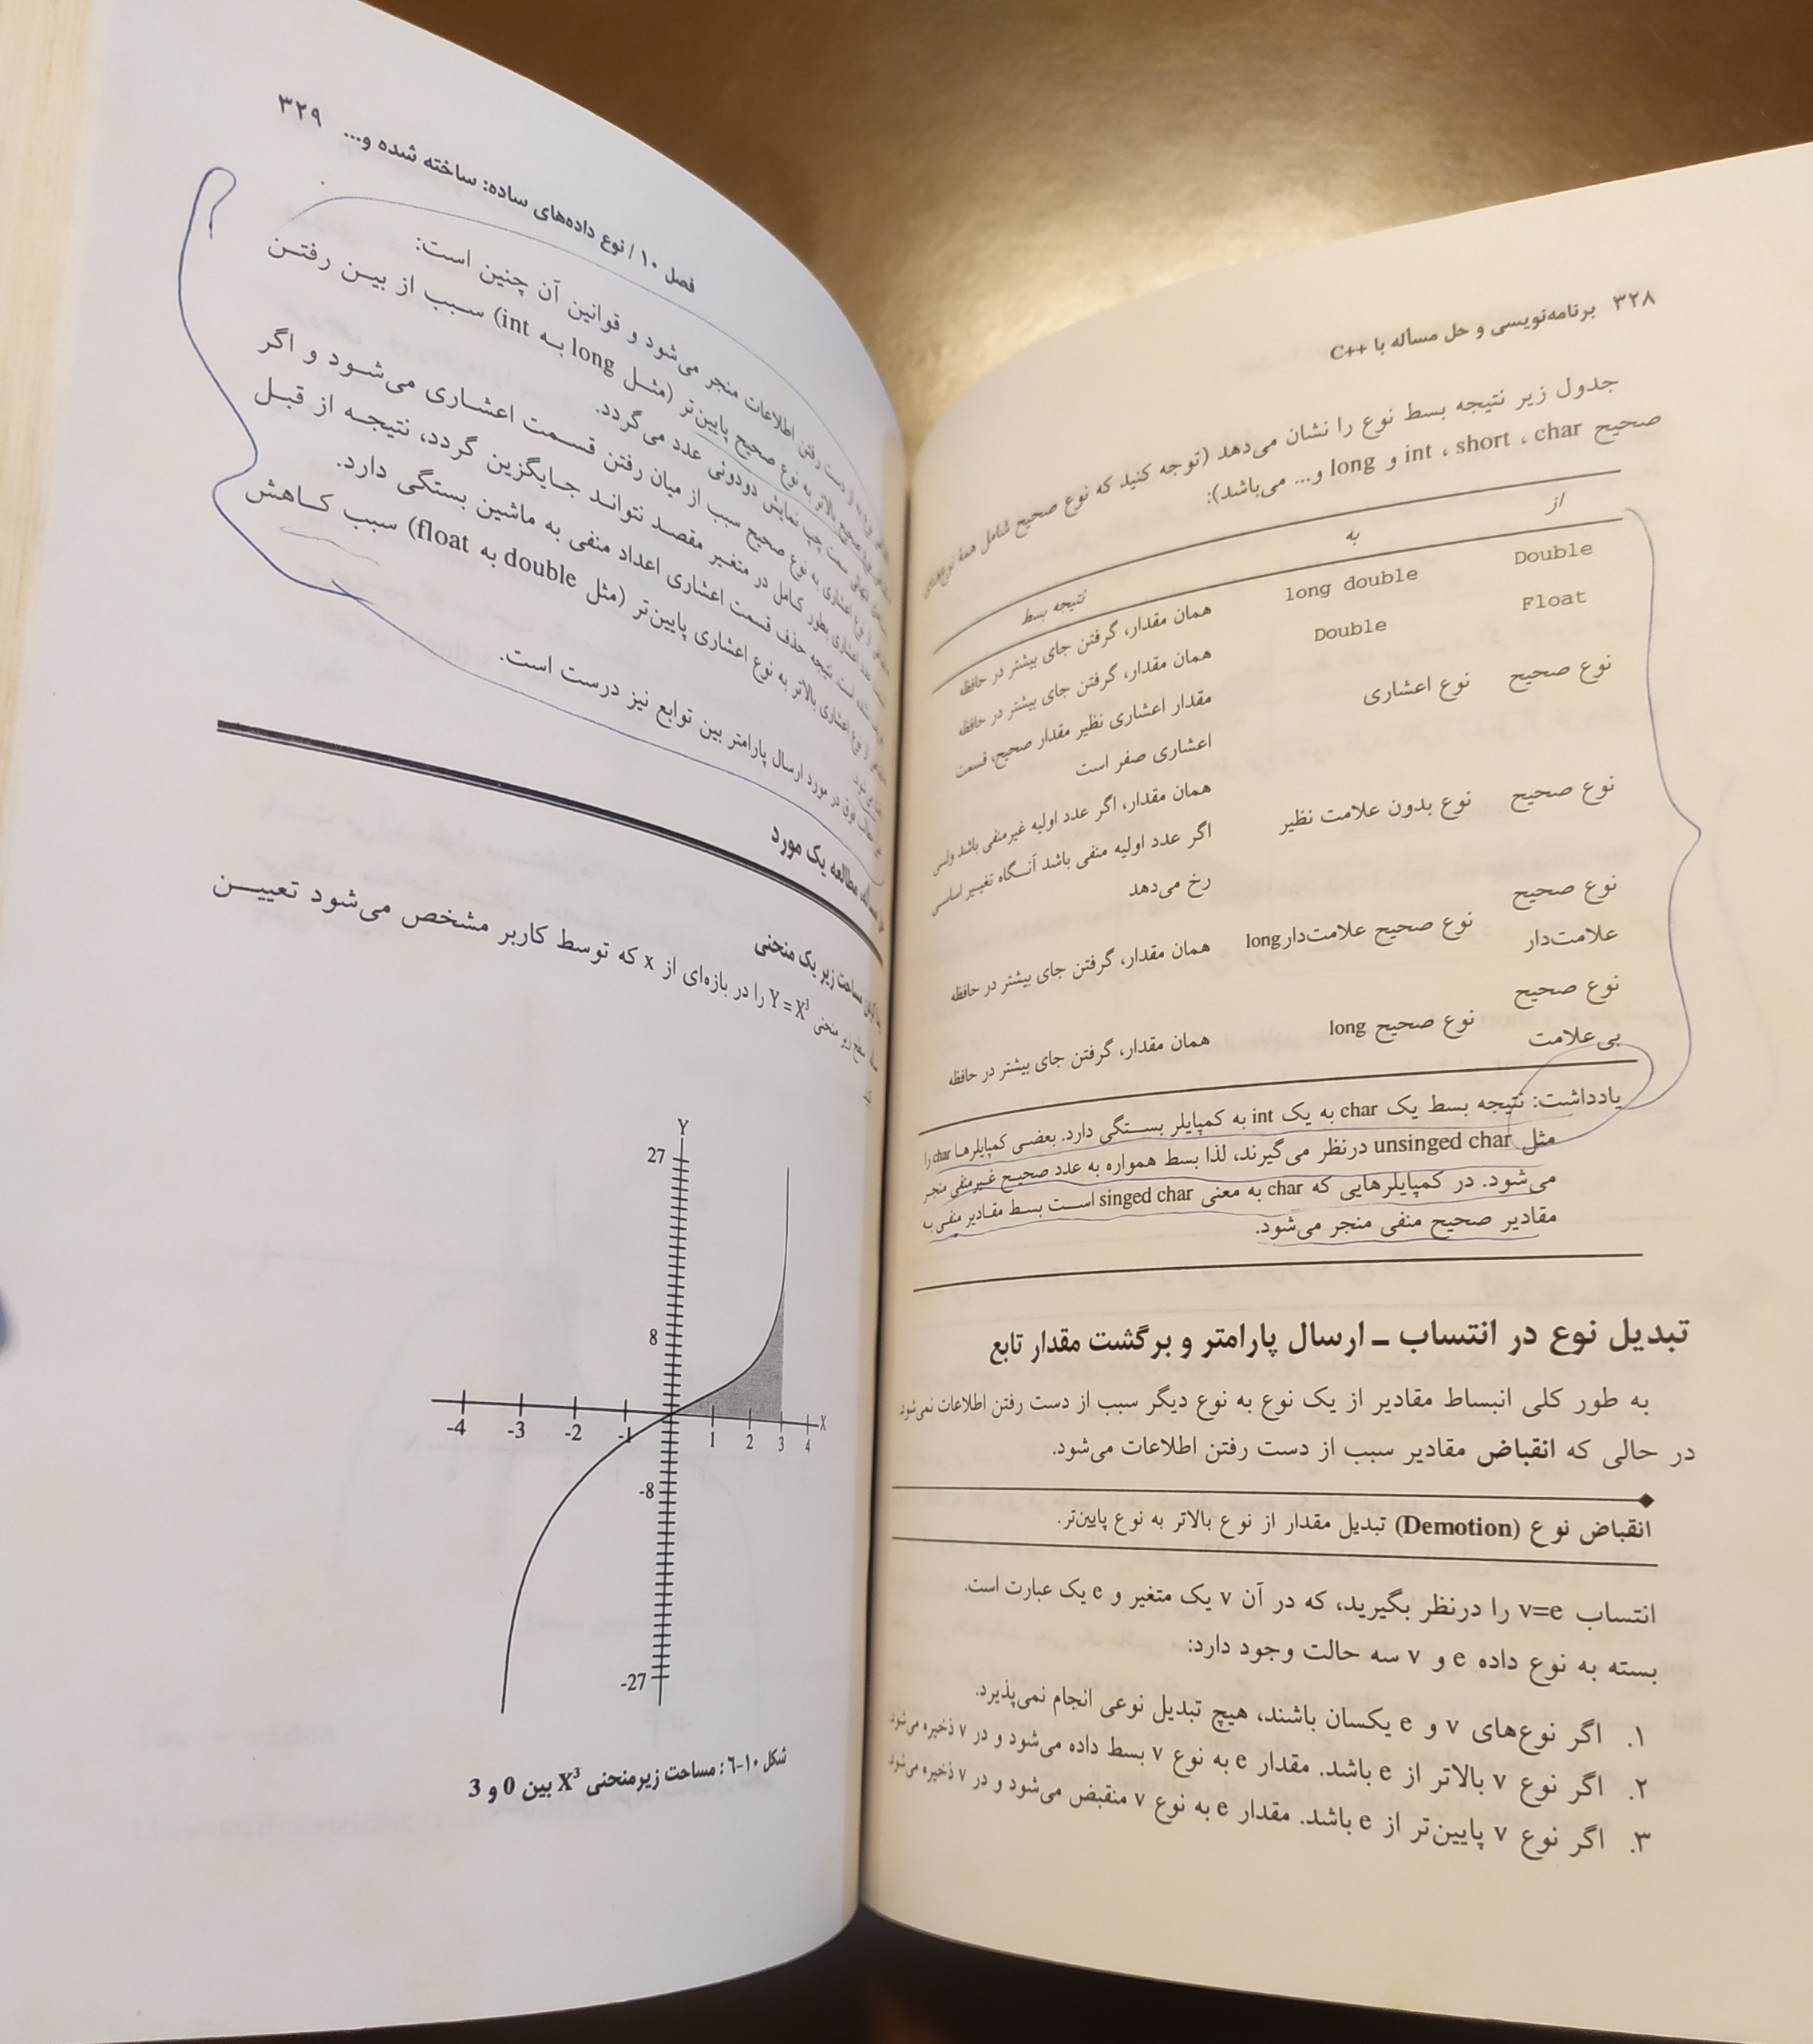 ۳۲۸ برنامه‌نویسی و حل مسأله با C++
جدول زیر نتیجه بسط نوع را نشان می‌دهد (توجه کنید که نوع صحیح شامل همهٔ نوع‌های
صحیح char ، short ، int و long و... می‌باشد):
از به نتیجه بسط
Double long double همان مقدار، گرفتن جای بیشتر در حافظه
Float Double همان مقدار، گرفتن جای بیشتر در حافظه
نوع صحیح نوع اعشاری مقدار اعشاری نظیر مقدار صحیح، قسمت
اعشاری صفر است
نوع صحیح نوع بدون علامت نظیر همان مقدار، اگر عدد اولیه غیرمنفی باشد ولی
اگر عدد اولیه منفی باشد آنگاه تغییر اساسی
رخ می‌دهد
نوع صحیح
علامت‌دار نوع صحیح علامت‌دار long همان مقدار، گرفتن جای بیشتر در حافظه
نوع صحیح
بی‌علامت نوع صحیح long همان مقدار، گرفتن جای بیشتر در حافظه
یادداشت: نتیجه بسط یک char به یک int به کمپایلر بستگی دارد. بعضی کمپایلرها char را
مثل unsinged char درنظر می‌گیرند، لذا بسط همواره به عدد صحیح غیرمنفی منجر
می‌شود. در کمپایلرهایی که char به معنی singed char است بسط مقادیر منفی به
مقادیر صحیح منفی منجر می‌شود.
تبدیل نوع در انتساب ـ ارسال پارامتر و برگشت مقدار تابع
به طور کلی انبساط مقادیر از یک نوع به نوع دیگر سبب از دست رفتن اطلاعات نمی‌شود
در حالی که انقباض مقادیر سبب از دست رفتن اطلاعات می‌شود.
انقباض نوع (Demotion) تبدیل مقدار از نوع بالاتر به نوع پایین‌تر.
انتساب v=e را درنظر بگیرید، که در آن v یک متغیر و e یک عبارت است.
بسته به نوع داده e و v سه حالت وجود دارد:
۱. اگر نوع‌های v و e یکسان باشند، هیچ تبدیل نوعی انجام نمی‌پذیرد.
۲. اگر نوع v بالاتر از e باشد. مقدار e به نوع v بسط داده می‌شود و در v ذخیره می‌شود.
۳. اگر نوع v پایین‌تر از e باشد. مقدار e به نوع v منقبض می‌شود و در v ذخیره می‌شود.
فصل ۱۰ / نوع داده‌های ساده: ساخته شده و... ۳۲۹
از دست رفتن اطلاعات منجر می‌شود و قوانین آن چنین است:
صحیح بالاتر به نوع صحیح پایین‌تر (مثل long به int) سبب از بین رفتن
سمت چپ نمایش دودونی عدد می‌گردد.
از نوع اعشاری به نوع صحیح سبب از میان رفتن قسمت اعشاری می‌شود و اگر
عدد اعشاری بطور کامل در متغیر مقصد نتواند جایگزین گردد، نتیجه از قبل
است. نتیجه حذف قسمت اعشاری اعداد منفی به ماشین بستگی دارد.
از نوع اعشاری بالاتر به نوع اعشاری پایین‌تر (مثل double به float) سبب کاهش
فوق در مورد ارسال پارامتر بین توابع نیز درست است.
مطالعه یک مورد
مساحت زیر یک منحنی
سطح زیر منحنی Y = X³ را در بازه‌ای از x که توسط کاربر مشخص می‌شود تعیین
Y
27
8
-4 -3 -2 -1 1 2 3 4 X
-8
-27
شکل ۱۰-۶: مساحت زیرمنحنی X³ بین 0 و 3